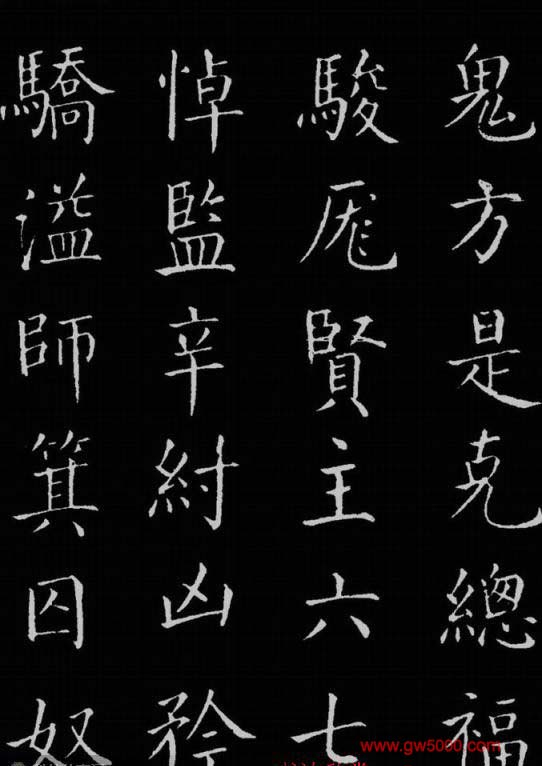 鬼方是克總福
駿厖賢主六七
悼監辛紂凶矜
驕溢師箕囚奴
www.gw5000.com